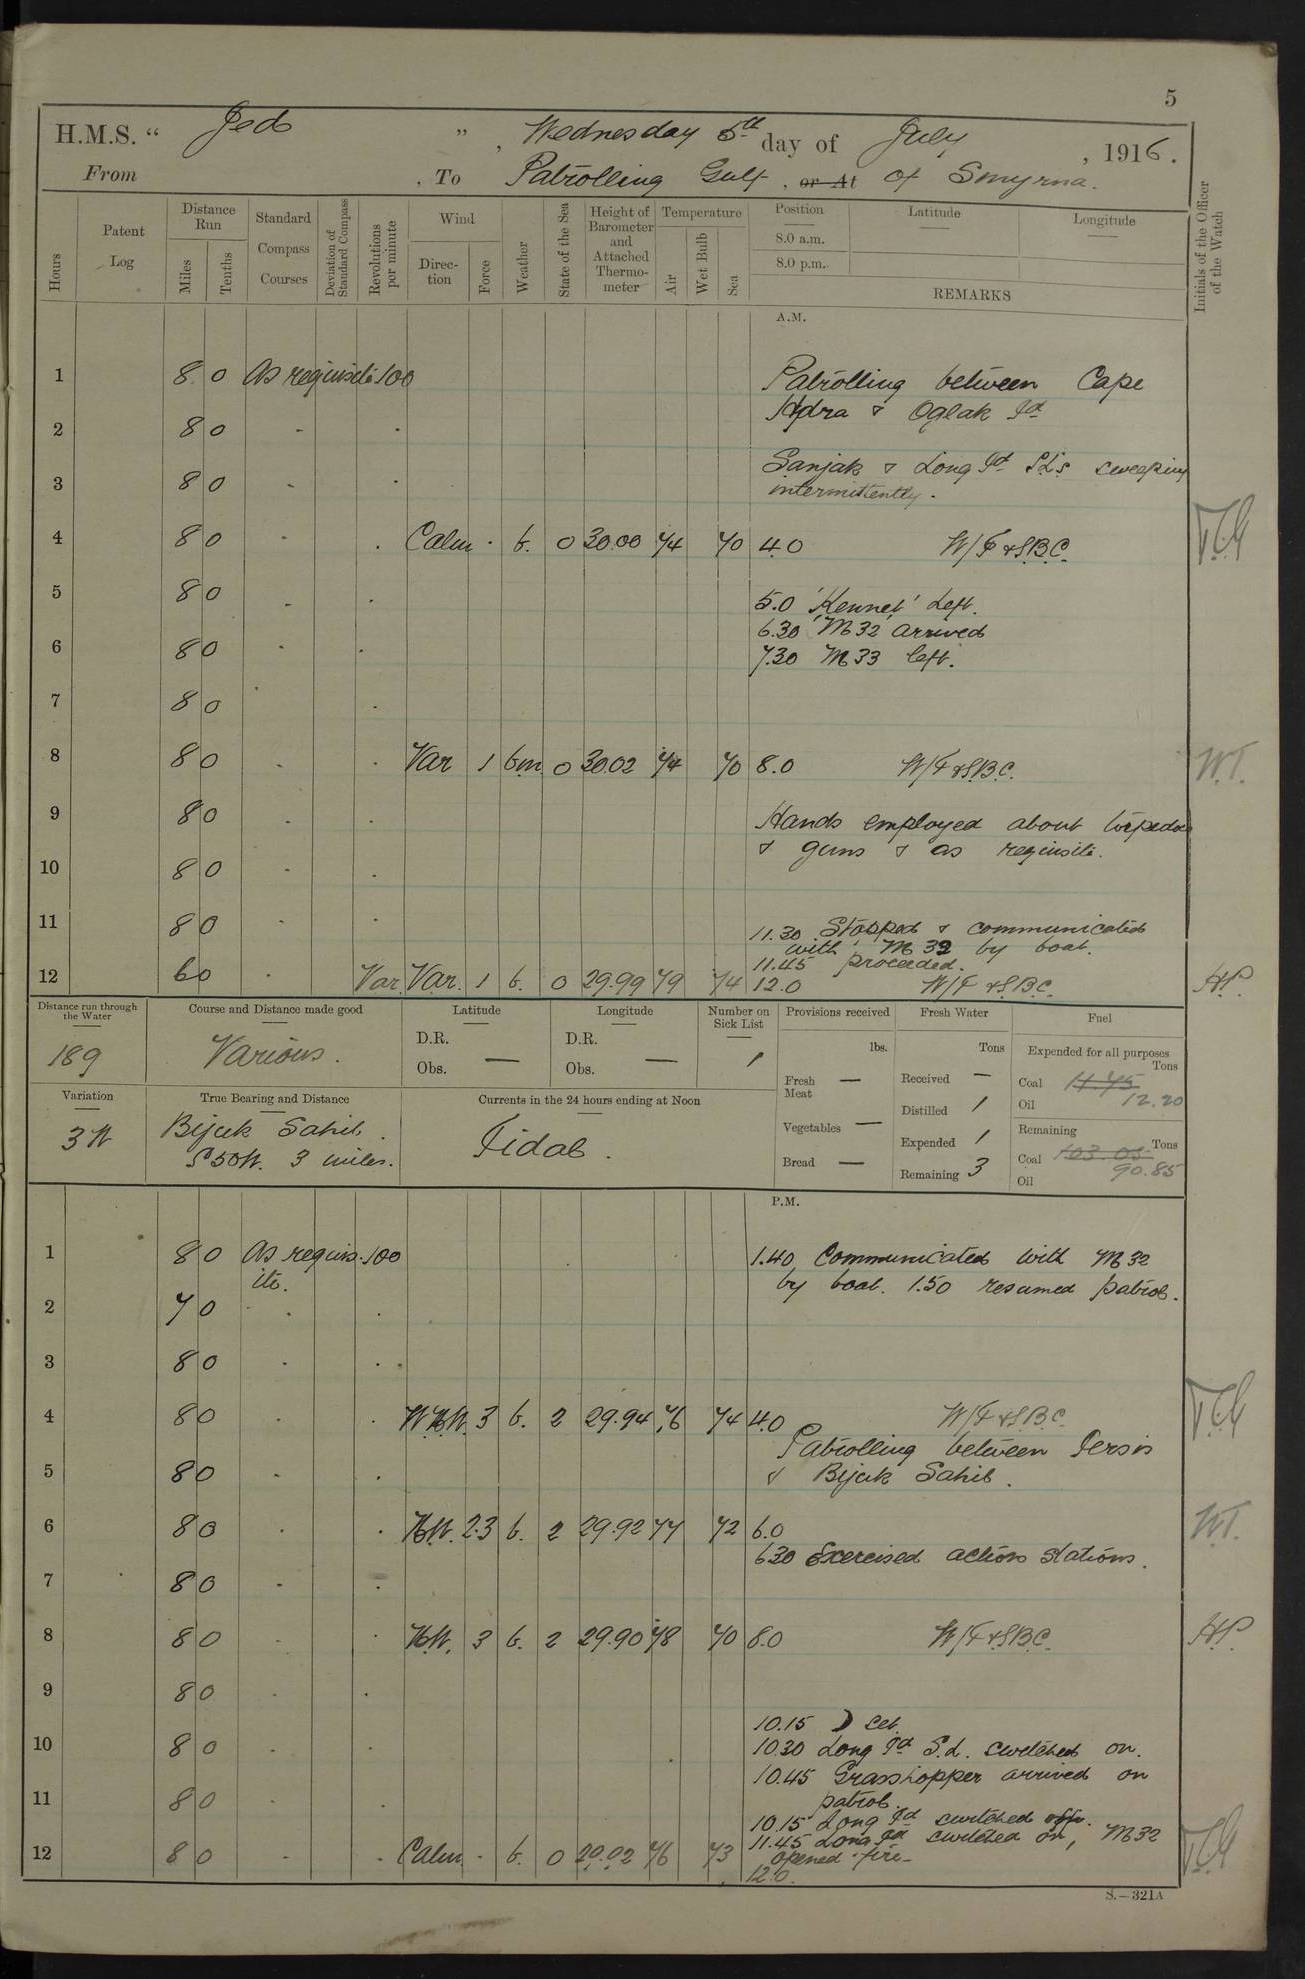 5
H.M.S. “ Jed ”, Wednesday 5th day of July, 1916.
From , To Patrolling Gulf, or At of Smyrna.
Hours
Patent Log
Distance Run
Miles
Tenths
Standard Compass Courses
Deviation of Standard Compass
Revolutions per minute
Wind
Direction
Force
Weather
State of the Sea
Height of Barometer and Attached Thermometer
Temperature
Air
Wet Bulb
Sea
Position
Latitude
Longitude
8.0 a.m.
8.0 p.m.
REMARKS
Initials of the Officer of the Watch
A.M.
1 8 0 As requisite 100 Patrolling between Cape
Hydra & Oglak Id
2 8 0 - .
Sanjak & Long Id S.L's sweeping
3 8 0 - .
intermittently.
4 8 0 - . Calm . b. 0 30.00 74 70 4.0 W/F & S.B.C.
5 8 0 - . 5.0 'Kennet' Left.
6.30 'M32' arrived
6 8 0 - . 7.30 M33 left.
7 8 0 - .
8 8 0 - . Var 1 bm 0 30.02 74 70 8.0 W/F & S.B.C. W.T.
9 8 0 - . Hands employed about torpedoes
& guns & as requisite.
10 8 0 - .
11 8 0 - . 11.30 Stopped & communicated
with M 32 by boat.
11.45 proceeded.
12 6 0 - Var. Var. 1 b. 0 29.99 79 74 12.0 W/F & S.B.C. H.P.
Distance run through the Water
189
Course and Distance made good
Various.
Latitude
D.R.
Obs. —
Longitude
D.R.
Obs. —
Number on Sick List
1
Provisions received
lbs.
Fresh Meat —
Vegetables —
Bread —
Fresh Water
Tons
Received —
Distilled 1
Expended 1
Remaining 3
Fuel
Expended for all purposes
Tons
Coal 11.75
12.20
Oil
Remaining
Tons
Coal 103.05
90.85
Oil
Variation
3 W
True Bearing and Distance
Bijuk Sahib.
S 50 W. 3 miles.
Currents in the 24 hours ending at Noon
Tidal.
P.M.
1 8 0 As requis- 100 1.40 Communicated with M 32
ite. by boat. 1.50 resumed patrol.
2 7 0 - .
3 8 0 - .
4 8 0 - . W.N.W. 3 b. 2 29.94 76 74 4.0 W/F & S.B.C.
Patrolling between Persis
5 8 0 - . & Bijuk Sahib.
6 8 0 - . N.W. 2.3 b. 2 29.92 77 72 6.0 W.T.
6.30 Exercised action stations.
7 8 0 - .
8 8 0 - . N.W. 3 b. 2 29.90 78 70 8.0 W/F & S.B.C. H.P.
9 8 0 - .
10.15 ☽ set.
10 8 0 - . 10.30 Long Id S.L. switched on.
10.45 Grasshopper arrived on
11 8 0 - . patrol.
10.15 Long Id switched off.
11.45 Long Id switched on, M32
12 8 0 - . Calm . b. 0 29.92 76 73 opened fire.
12.0.
S.—321A